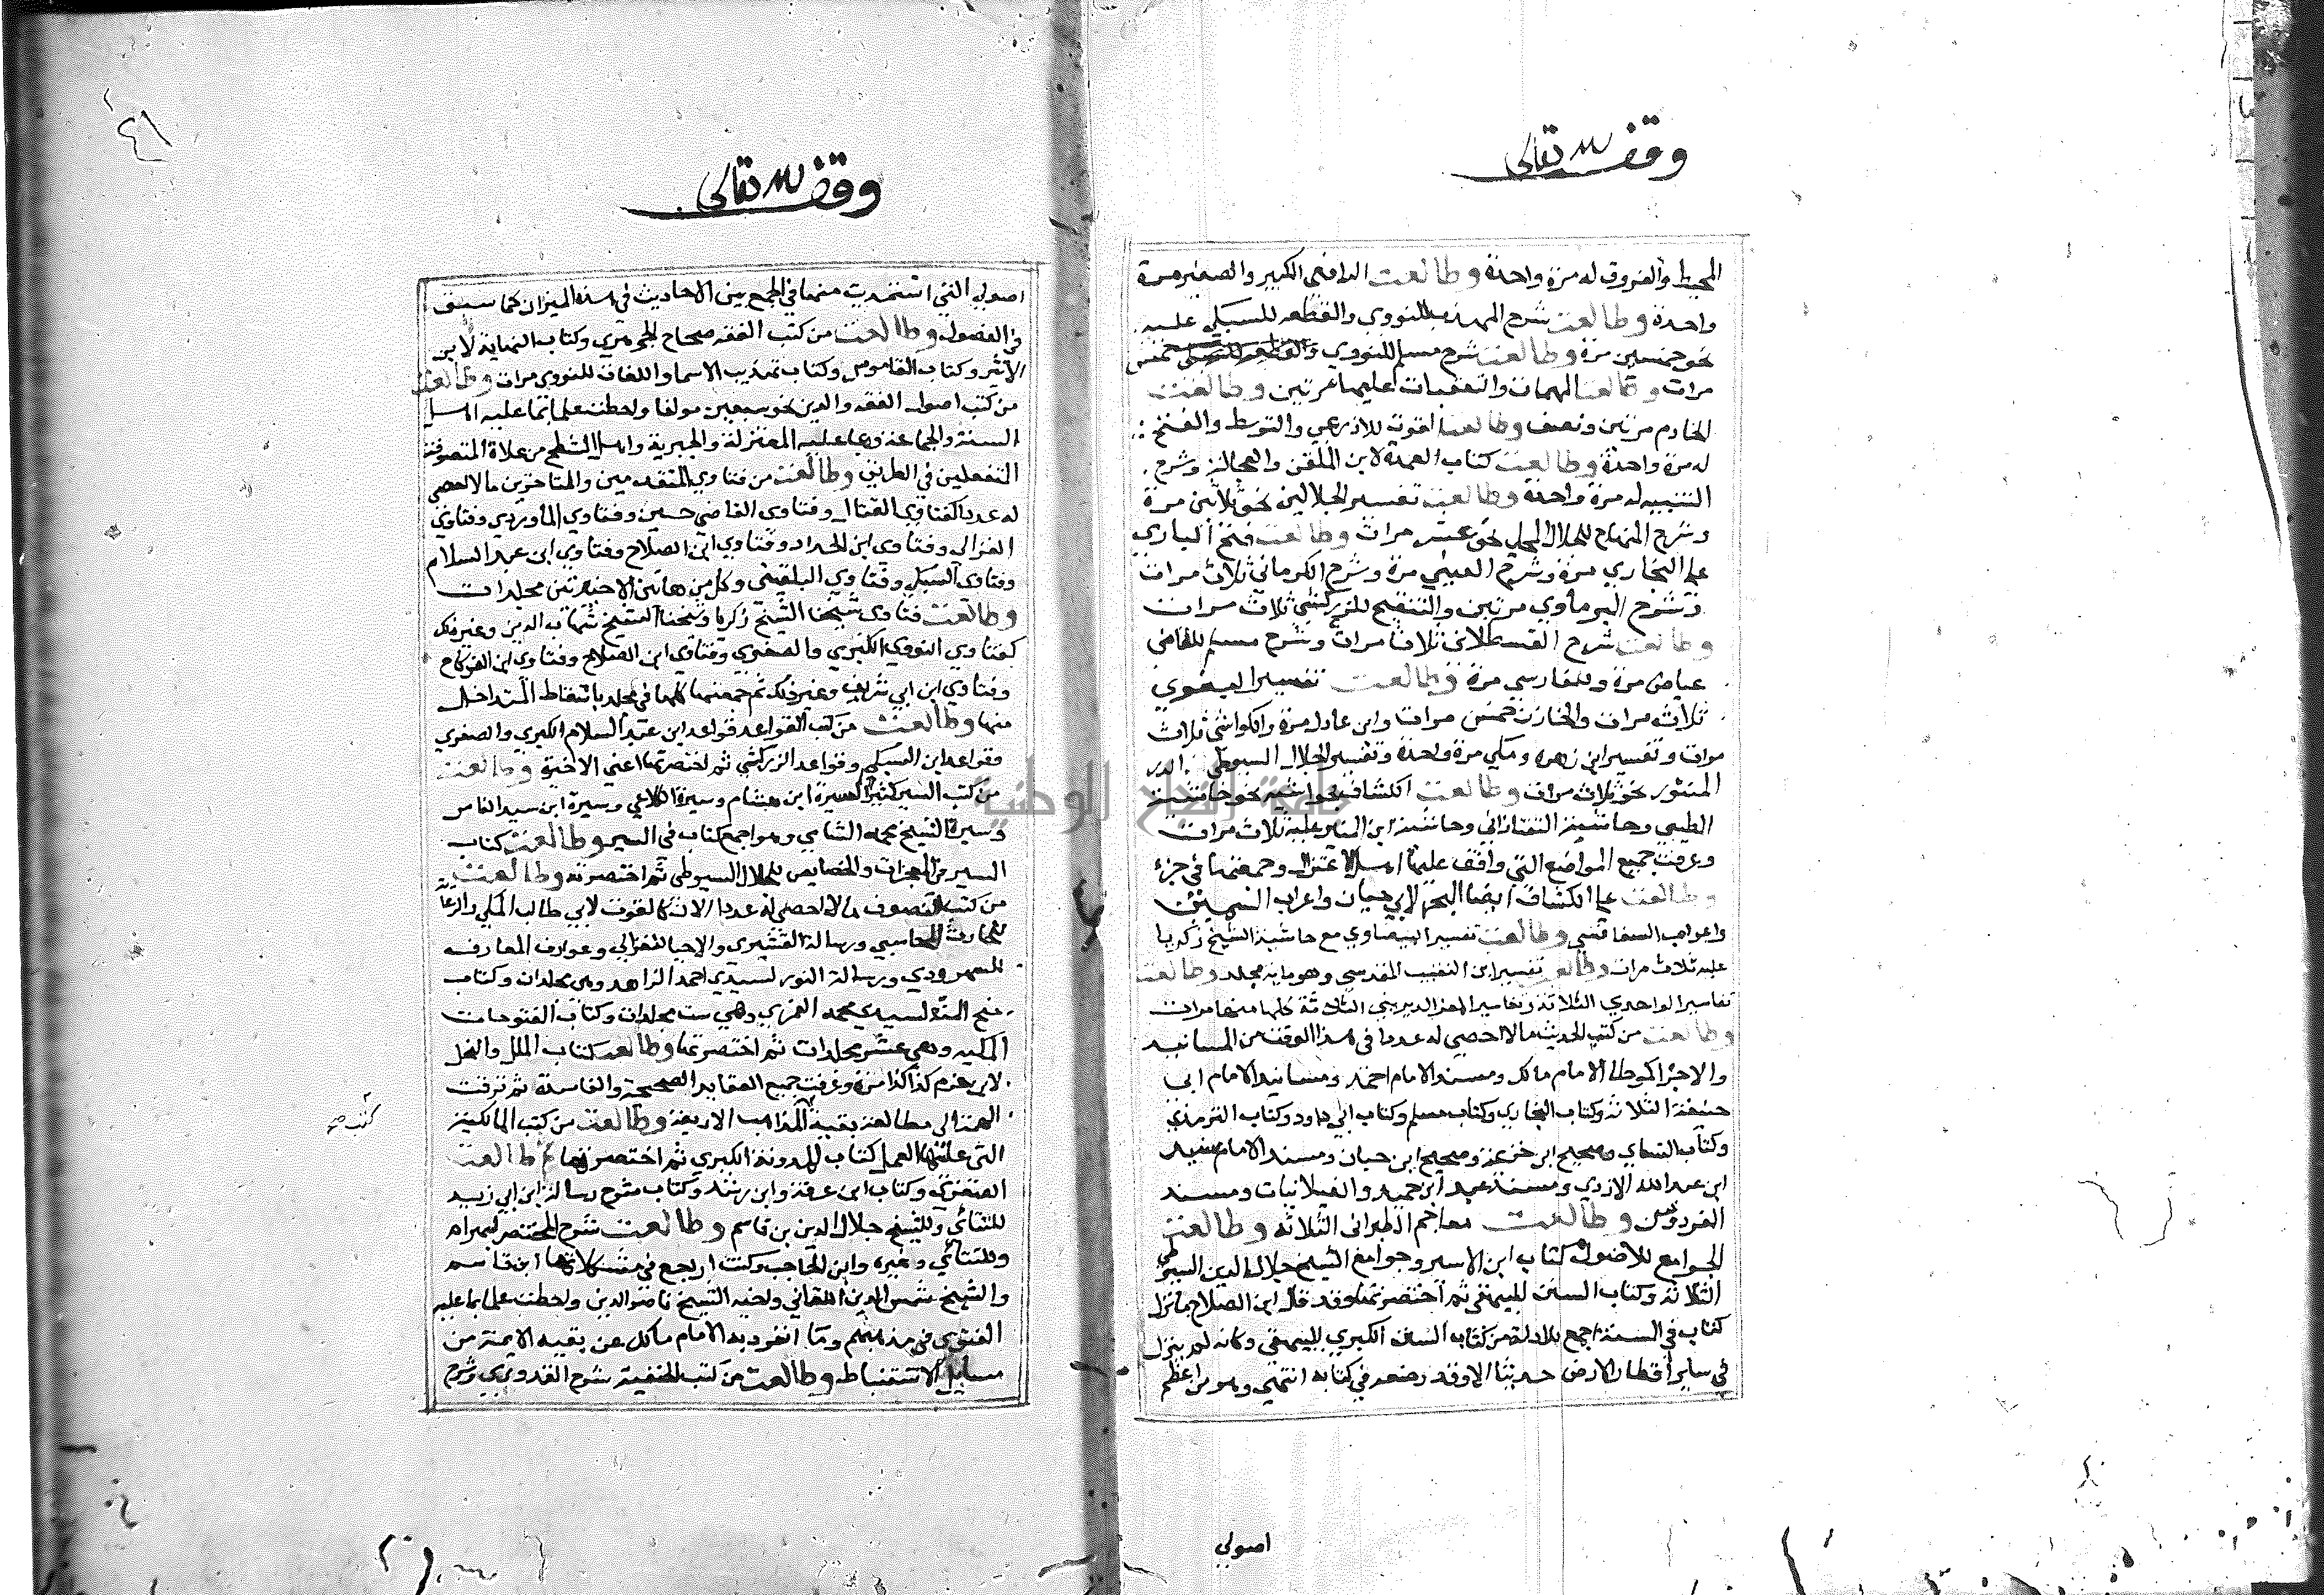 وقف لله تعالى
المحيط والفروق له مرة واحدة وطالعت الرافعي الكبير والصغير مرة
واحدة وطالعت شرح المهذب للنووي والقطعه للسبكي عليه
نحو خمسين مرة وطالعت شرح مسلم للنووي خمس
مرات وطالعت المهمات والتعقبات عليها مرتين وطالعت
الخادم مرتين ونصف وطالعت القوت للاذرعي والتوسط والفتح
له مرة واحدة وطالعت كتاب العمدة لابن الملقن والعجالة وشرح
التنبيه له مرة واحدة وطالعت تفسير الجلالين نحو ثلاثين مرة
وشرح المنهاج للجلال المحلي نحو عشر مرات وطالعت فتح الباري
على البخاري مرة وشرح العيني مرة وشرح الكرماني ثلاث مرات
وشرح البرماوي مرتين والتنقيح للزركشي ثلاث مرات
وطالعت شرح القسطلاني ثلاث مرات وشرح مسلم للقاضي
عياض مرة وللفارسي مرة وطالعت تفسير البغوي
ثلاث مرات والخازن خمس مرات وابن عادل مرة والكواشي ثلاث
مرات وتفسير ابن زهره ومكي مرة واحدة وتفسير الجلال السيوطي الدر
المنثور نحو ثلاث مرات وطالعت الكشاف بحواشيه نحو حاشية
الطيبي وحاشية التفتازاني وحاشية ابن المنير عليه ثلاث مرات
وعرفت جميع المواضع التي وافق عليها اهل الاعتزال وجمعتها في جزء
وطالعت على الكشاف ايضا البحر لابي حيان واعراب السمين
واعراب السفاقسي وطالعت تفسير البيضاوي مع حاشية الشيخ زكريا
عليه ثلاث مرات وطالعت تفسير ابن النقيب المقدسي وهو ماية مجلد وطالعت
تفاسير الواحدي الثلاثة وتفاسير العز الديريني الثلاثة كلها منها مرات
وطالعت من كتب الحديث مالا احصي له عددا في هذا الوقت من المسانيد
والاجزا كموطا الامام مالك ومسند الامام احمد ومسانيد الامام ابي
حنيفة الثلاثة وكتاب البخاري وكتاب مسلم وكتاب ابي داود وكتاب الترمذي
وكتاب النساي وصحيح ابن خزيمة وصحيح ابن حبان ومسند الامام سنيد
ابن عبد الله الازدي ومسند عبد ابن حميد والغيلانيات ومسند
الفردوس وطالعت معاجم الطبراني الثلاثة وطالعت
الجوامع للاصول كتاب ابن الاسير وجوامع الشيخ جلال الدين السيوطي
الثلاثة وكتاب السنن للبيهقي ثم اختصرتها وقد قال ابن الصلاح ما نزل
كتاب في السنة اجمع للادلة من كتاب السنن الكبري للبيهقي وكانه لم ينزل
في ساير اقطار الارض حديثا الا وقد وضعه في كتابه انتهي وهو من اعظم
اصولي
٤١
وقف لله تعالى
اصولي التي استمديت منها في الجمع بين الاحاديث في هذه الميزان كما سبق
في الفصول وطالعت من كتب اللغه صحاح الجوهري وكتاب النهاية لابن
الاثير وكتاب القاموس وكتاب تهذيب الاسما واللغات للنووي مرات وطالعت
من كتب اصول الفقه والدين نحو سبعين مولفا واحطت علما بما عليه اهل
السنة والجماعة وبما عليه المعتزلة والجبرية واهل الشطح من غلاة المتصوفة
التفعلين في الطريق وطالعت من فتاوي المتقدمين والمتاخرين مالا احصي
له عددا كفتاوي القفال وفتاوى القاضي حسين وفتاوي الماوردي وفتاوي
الغزالي وفتاوى ابن الحداد وفتاوي ابن الصلاح وفتاوي ابن عبد السلام
وفتاوى السبكي وفتاوي البلقيني وكل من هاتين الاخيرتين مجلدات
وطالعت فتاوى شيخنا الشيخ زكريا وشيخنا الشيخ شهاب الدين وغير ذلك
كفتاوي النووي الكبري والصغري وفتاوي ابن الصلاح وفتاوي ابن الفركاح
وفتاوي ابن ابي شريف وغير ذلك ثم جمعتها كلها في مجلد باسقاط المتداخل
منها وطالعت من كتب القواعد قواعد ابن عبد السلام الكبري والصغري
وقواعد ابن السبكي وقواعد الزركشي ثم اختصرتها اعني الاخيرة وطالعت
من كتب السير كثيرا كسيرة ابن هشام وسيرة الكلاعي وسيرة ابن سيد الناس
وسيرة الشيخ محمد الشامي وهو اجمع كتاب في السير وطالعت كتاب
السير في المعجزات والخصايص للجلال السيوطي ثم اختصرته وطالعت
من كتب التصوف مالا احصي له عددا الان كالقوت لابي طالب المكي والرعاية
للحارث المحاسبي ورسالة القشيري والاحيا للغزالي وعوارف المعارف
للسهروردي ورسالة النور لسيدي احمد الزاهد وهي مجلدان وكتاب
منح المنة لسيدي محمد الغمري وهي ست مجلدات وكتاب الفتوحات
المكيه وهي عشر مجلدات ثم اختصرتها وطالعت كتاب الملل والنحل
لابن حزم كذا كذا مرة وعرفت جميع العقايد الصحيحة والفاسدة ثم ترقت
الهمة الى مطالعة بقية المذاهب الاربعة وطالعت من كتب المالكية
التي عليها العمل كتاب المدونة الكبري ثم اختصرتها ثم طالعت
وكتاب ابن عرفة وابن رشد وكتاب شرح رسالة ابن ابي زيد
للتتائي وللشيخ جلال الدين بن قاسم وطالعت شرح المختصر لبهرام
وللتتائي وغيره وابن الحاجب وكنت اراجع في مشكلاتها ابن قاسم
والشيخ شمس الدين اللقاني واخيه الشيخ ناصر الدين واحطت علما بما عليه
الفتوى في مذهبهم وما انفرد به الامام مالك عن بقيه الايمة من
مسايل الاستنباط وطالعت من كتب الحنفية شرح القدوري وشرح